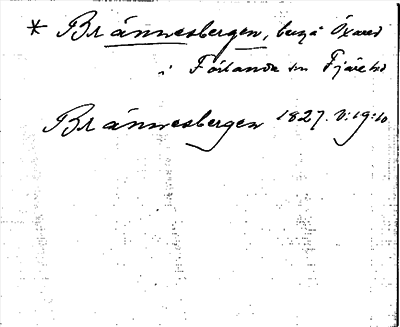 * Brännesbergen, bergå Öxared
i Förlanda sn Fjäre hd
Brännesbergen 1827. V:19:10